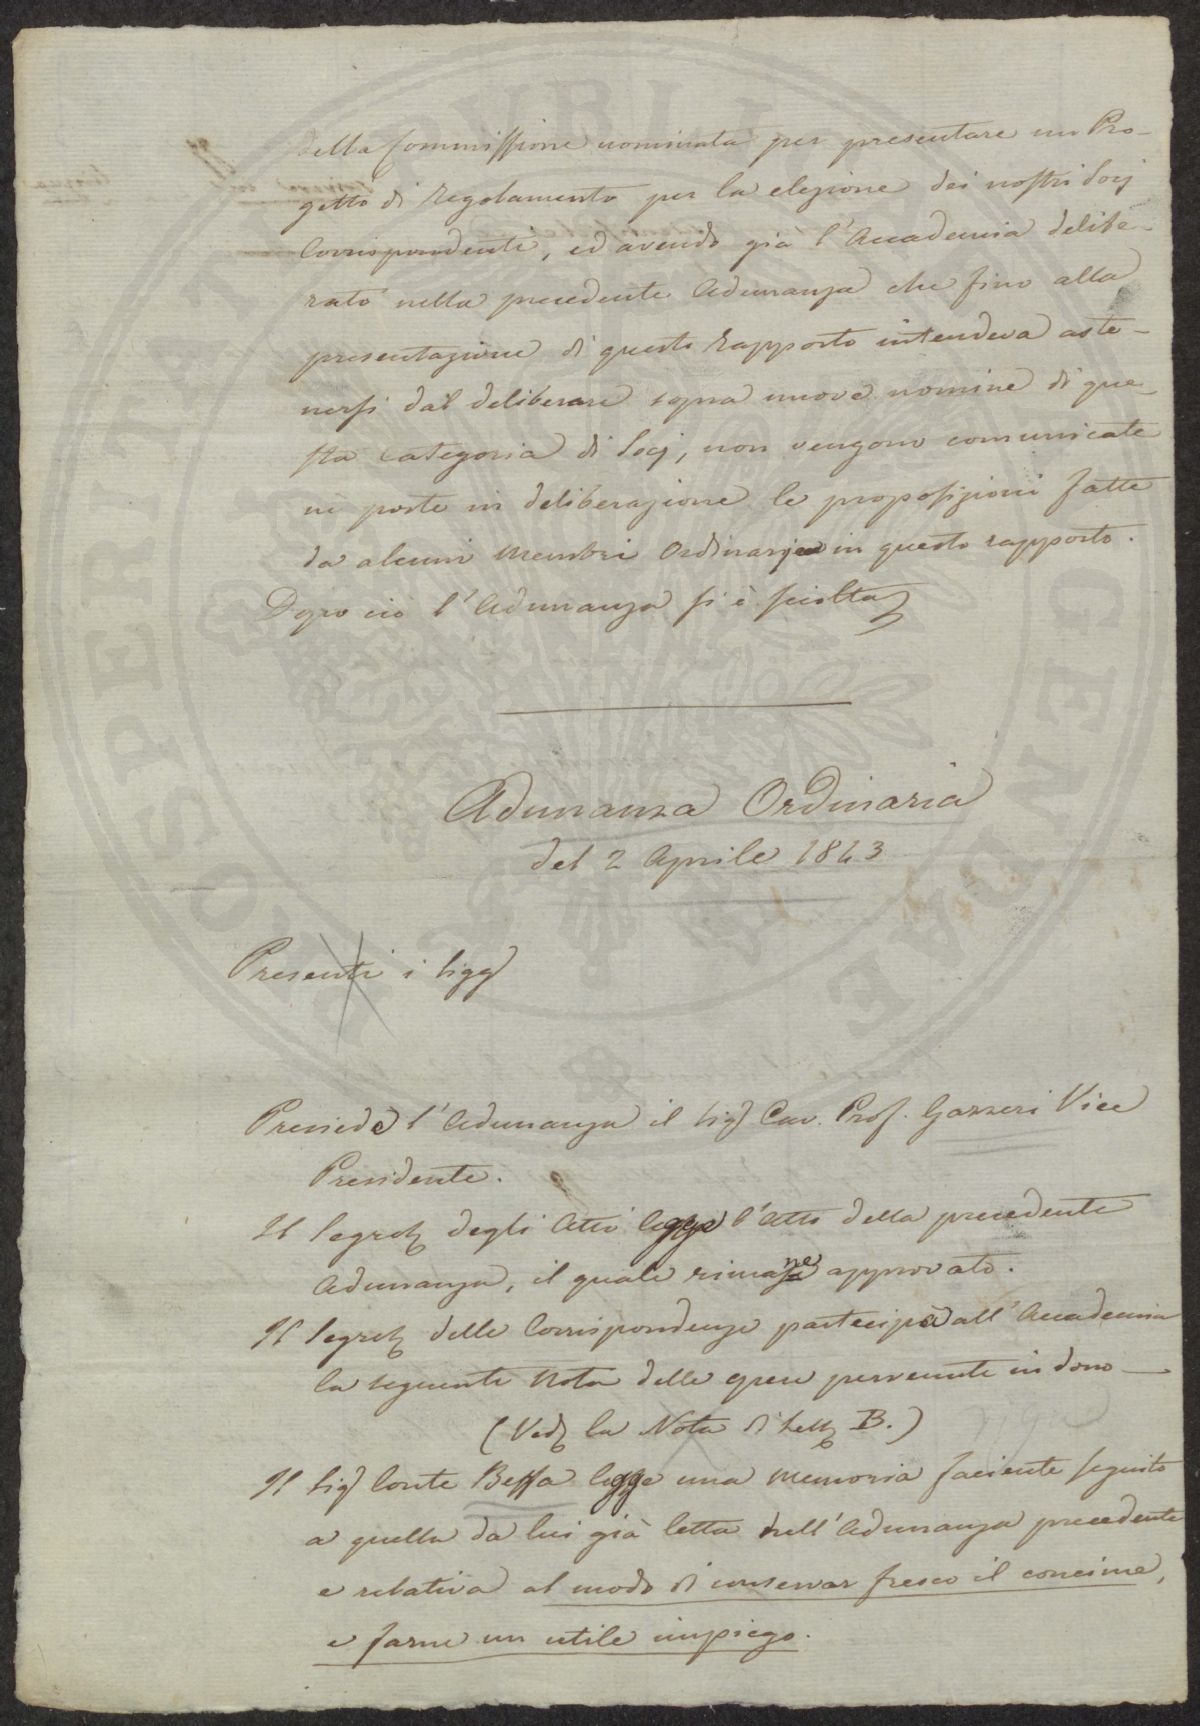 della Commissione nominata per presentare un Pro-
getto di Regolamento per la elezione dei nostri Socj
Corrispondenti, ed avendo già l'Accademia delibe-
rato nella precedente Adunanza che fino alla
presentazione di questo Rapporto intendeva aste-
nersi dal deliberare sopra nuove nomine di que-
sta categoria di Socj, non vengono comunicate
nè poste in deliberazione le proposizioni fatte
da alcuni Membri Ordinarj in questo rapporto.
Dopo ciò l'Adunanza si è sciolta
Adunanza Ordinaria
del 2 Aprile 1843
Presenti i Sigg
Presiede l'Adunanza il Sig Cav. Prof. Gazzeri Vice
Presidente.
Il Segret degli Atti legge l'Atto della precedente
Adunanza, il quale rimane approvato.
Il Segret delle Corrispondenze partecipa all'Accademia
la seguente Nota delle opere pervenute in dono —
(Ved la Nota di Lett B.)
Il Sig Conte Beffa legge una Memoria faciente seguito
a quella da lui già letta nell'Adunanza precedente
e relativa al modo di conservar fresco il concime,
e farne un utile impiego.
PUBLICAE
GENTIUM
PROSPERITATI